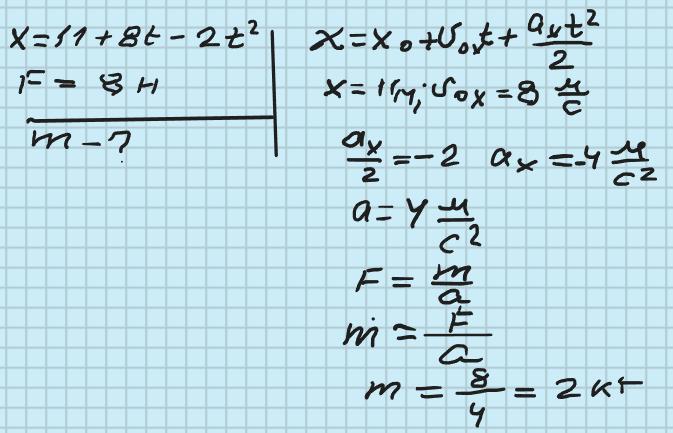 x = 11 + 8t - 2t²
F = 8 н
m - ?
x = x₀ + υ₀ₓt + aₓt²/2
x = 11 м; υ₀ₓ = 8 м/с
aₓ/2 = -2 aₓ = -4 м/с²
a = 4 м/с²
F = m/a
m = F/a
m = 8/4 = 2 кг